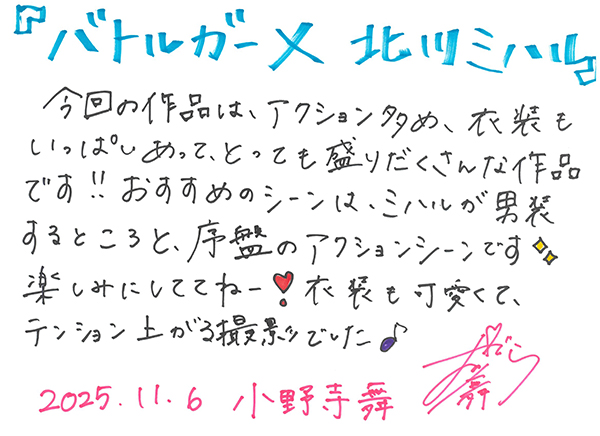 『バトルガーX 北川ミハル』
今回の作品は、アクション多め、衣装も
いっぱいあって、とっても盛りだくさんな作品
です!! おすすめのシーンは、ミハルが男装
するところと、序盤のアクションシーンです
楽しみにしててねー❣ 衣装も可愛くて、
テンション上がる撮影でした♪
2025.11.6 小野寺舞
舞